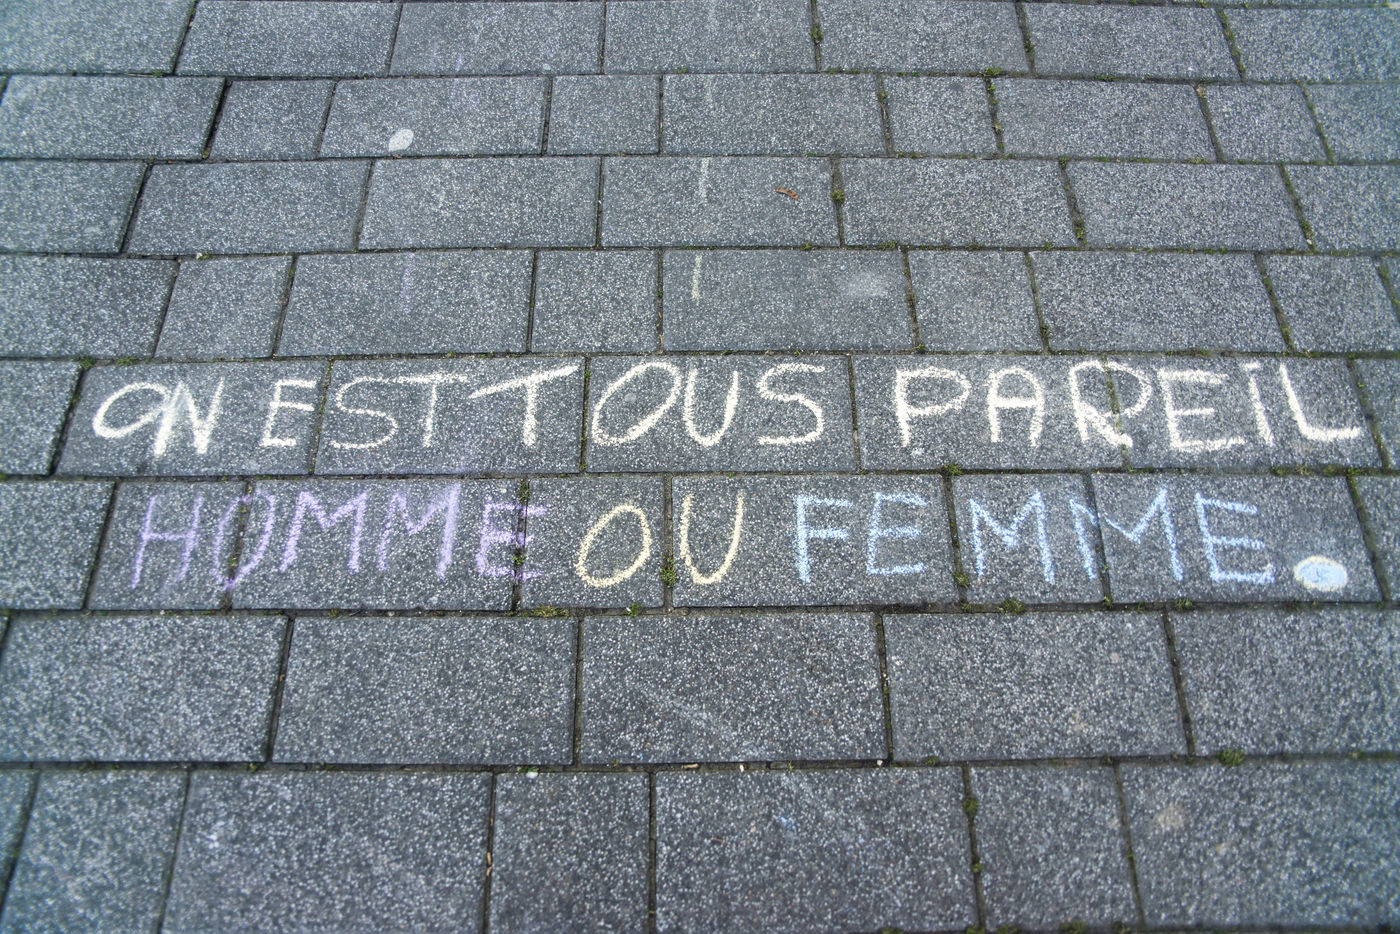 ON EST TOUS PAREIL
HOMME OU FEMME.